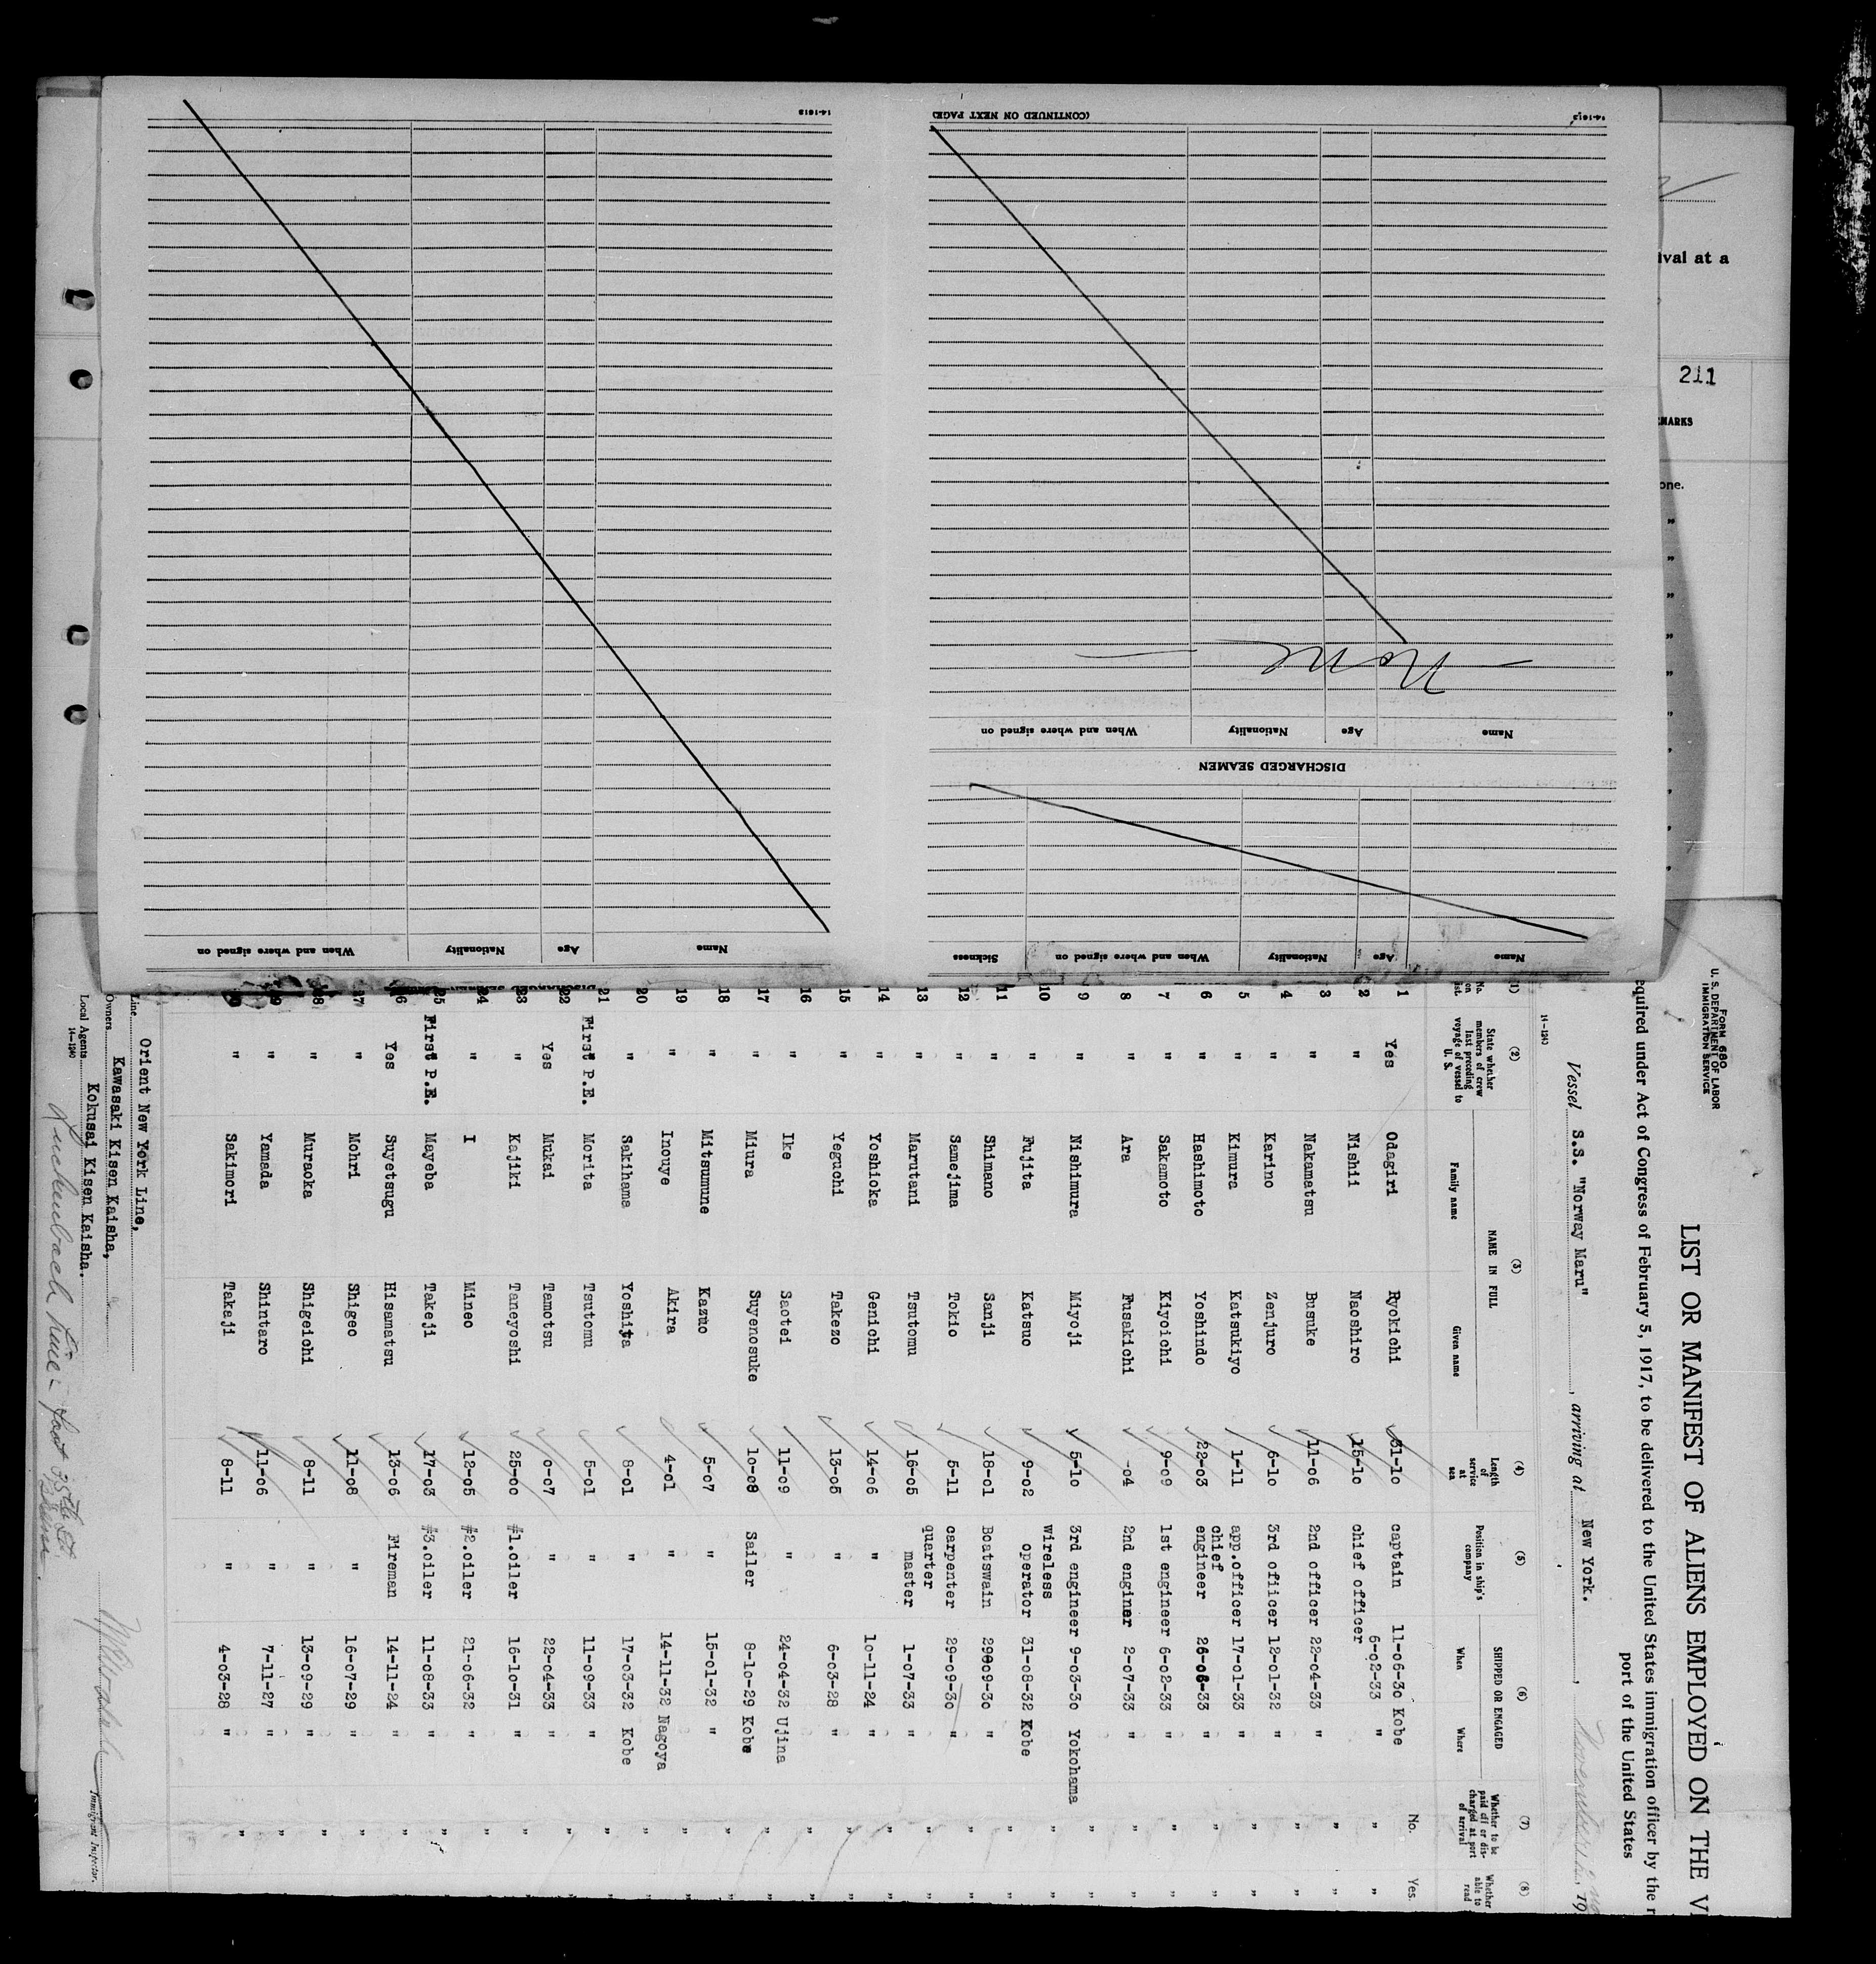 14-1613
(CONTINUED ON NEXT PAGE)
14-1613
None
Name Age Nationality When and where signed on
DISCHARGED SEAMEN
Name Age Nationality When and where signed on
Name Age Nationality When and where signed on Sickness
ival at a
211
MARKS
one.
FORM 680
U. S. DEPARTMENT OF LABOR
IMMIGRATION SERVICE
LIST OR MANIFEST OF ALIENS EMPLOYED ON THE V
equired under Act of Congress of February 5, 1917, to be delivered to the United States immigration officer by the r
port of the United States
Vessel S.S. "Norway Maru", arriving at New York.,
14-1240
(1) (2) (3) (4) (5) (6) (7) (8)
No. on list. State whether members of crew last preceding voyage of vessel to U. S. NAME IN FULL Family name Given name Length of service at sea Position in ship's company SHIPPED OR ENGAGED When Where Whether to be paid off or discharged at port of arrival Whether able to read
1 Yes Odagiri Ryokichi 31-10 captain 11-06-30 Kobe No. Yes.
2 " Nishii Naoshiro 15-10 chief officer 6-02-33 " " "
3 " Nakamatsu Busuke 11-06 2nd officer 22-04-33 " " "
4 " Karino Zenjuro 6-10 3rd officer 12-01-32 " " "
5 " Kimura Katsukiyo 1-11 app.officer 17-01-33 " " "
6 " Hashimoto Yoshindo 22-03 chief engineer 26-08-33 " " "
7 " Sakamoto Kiyoichi 9-09 1st engineer 6-02-33 " " "
8 " Ara Fusakichi -04 2nd enginer 2-07-33 " " "
9 " Nishimura Miyoji 5-10 3rd engineer 9-03-30 Yokohama " "
10 Fujita Katsuo 9-02 wireless operator 31-08-32 Kobe " "
11 " Shimano Sanji 18-01 Boatswain 29-09-30 " " "
12 " Samejima Tokio 5-11 carpenter 29-09-30 " " "
13 " Marutani Tsutomu 16-05 quarter master 1-07-33 " " "
14 " Yoshioka Genichi 14-06 " 10-11-24 " " "
15 " Yaguchi Takezo 13-05 " 6-03-28 " " "
16 " Ike Saotei 11-09 " 24-04-32 Ujina " "
17 " Miura Suyenosuke 10-08 Sailer 8-10-29 Kobe " "
18 " Mitsumune Kazuo 5-07 " 15-01-32 " " "
19 " Inouye Akira 4-01 " 14-11-32 Nagoya " "
20 " Sakihama Yoshita 8-01 " 17-03-32 Kobe " "
21 First P.E. Morita Tsutomu 5-01 " 11-09-33 " " "
22 Yes Mukai Tamotsu 0-07 " 22-04-33 " " "
23 " Kajiki Taneyoshi 25-00 #1.oiler 16-10-31 " " "
24 " I Mineo 12-05 #2.oiler 21-06-32 " " "
25 First P.E. Mayeba Takeji 17-03 #3.oiler 11-08-33 " " "
26 Yes Suyetsugu Hisamatsu 13-06 Fireman 14-11-24 " " "
27 " Mohri Shigeo 11-08 " 16-07-29 " " "
28 " Muraoka Shigeichi 8-11 " 13-09-29 " " "
29 " Yamada Shintaro 11-06 " 7-11-27 " " "
30 " Sakimori Takaji 8-11 " 4-03-28 " " "
Line Orient New York Line,
Owners Kawasaki Kisen Kaisha,
Local Agents Kokusai Kisen Kaisha.
14-1240
Immigrant Inspector.